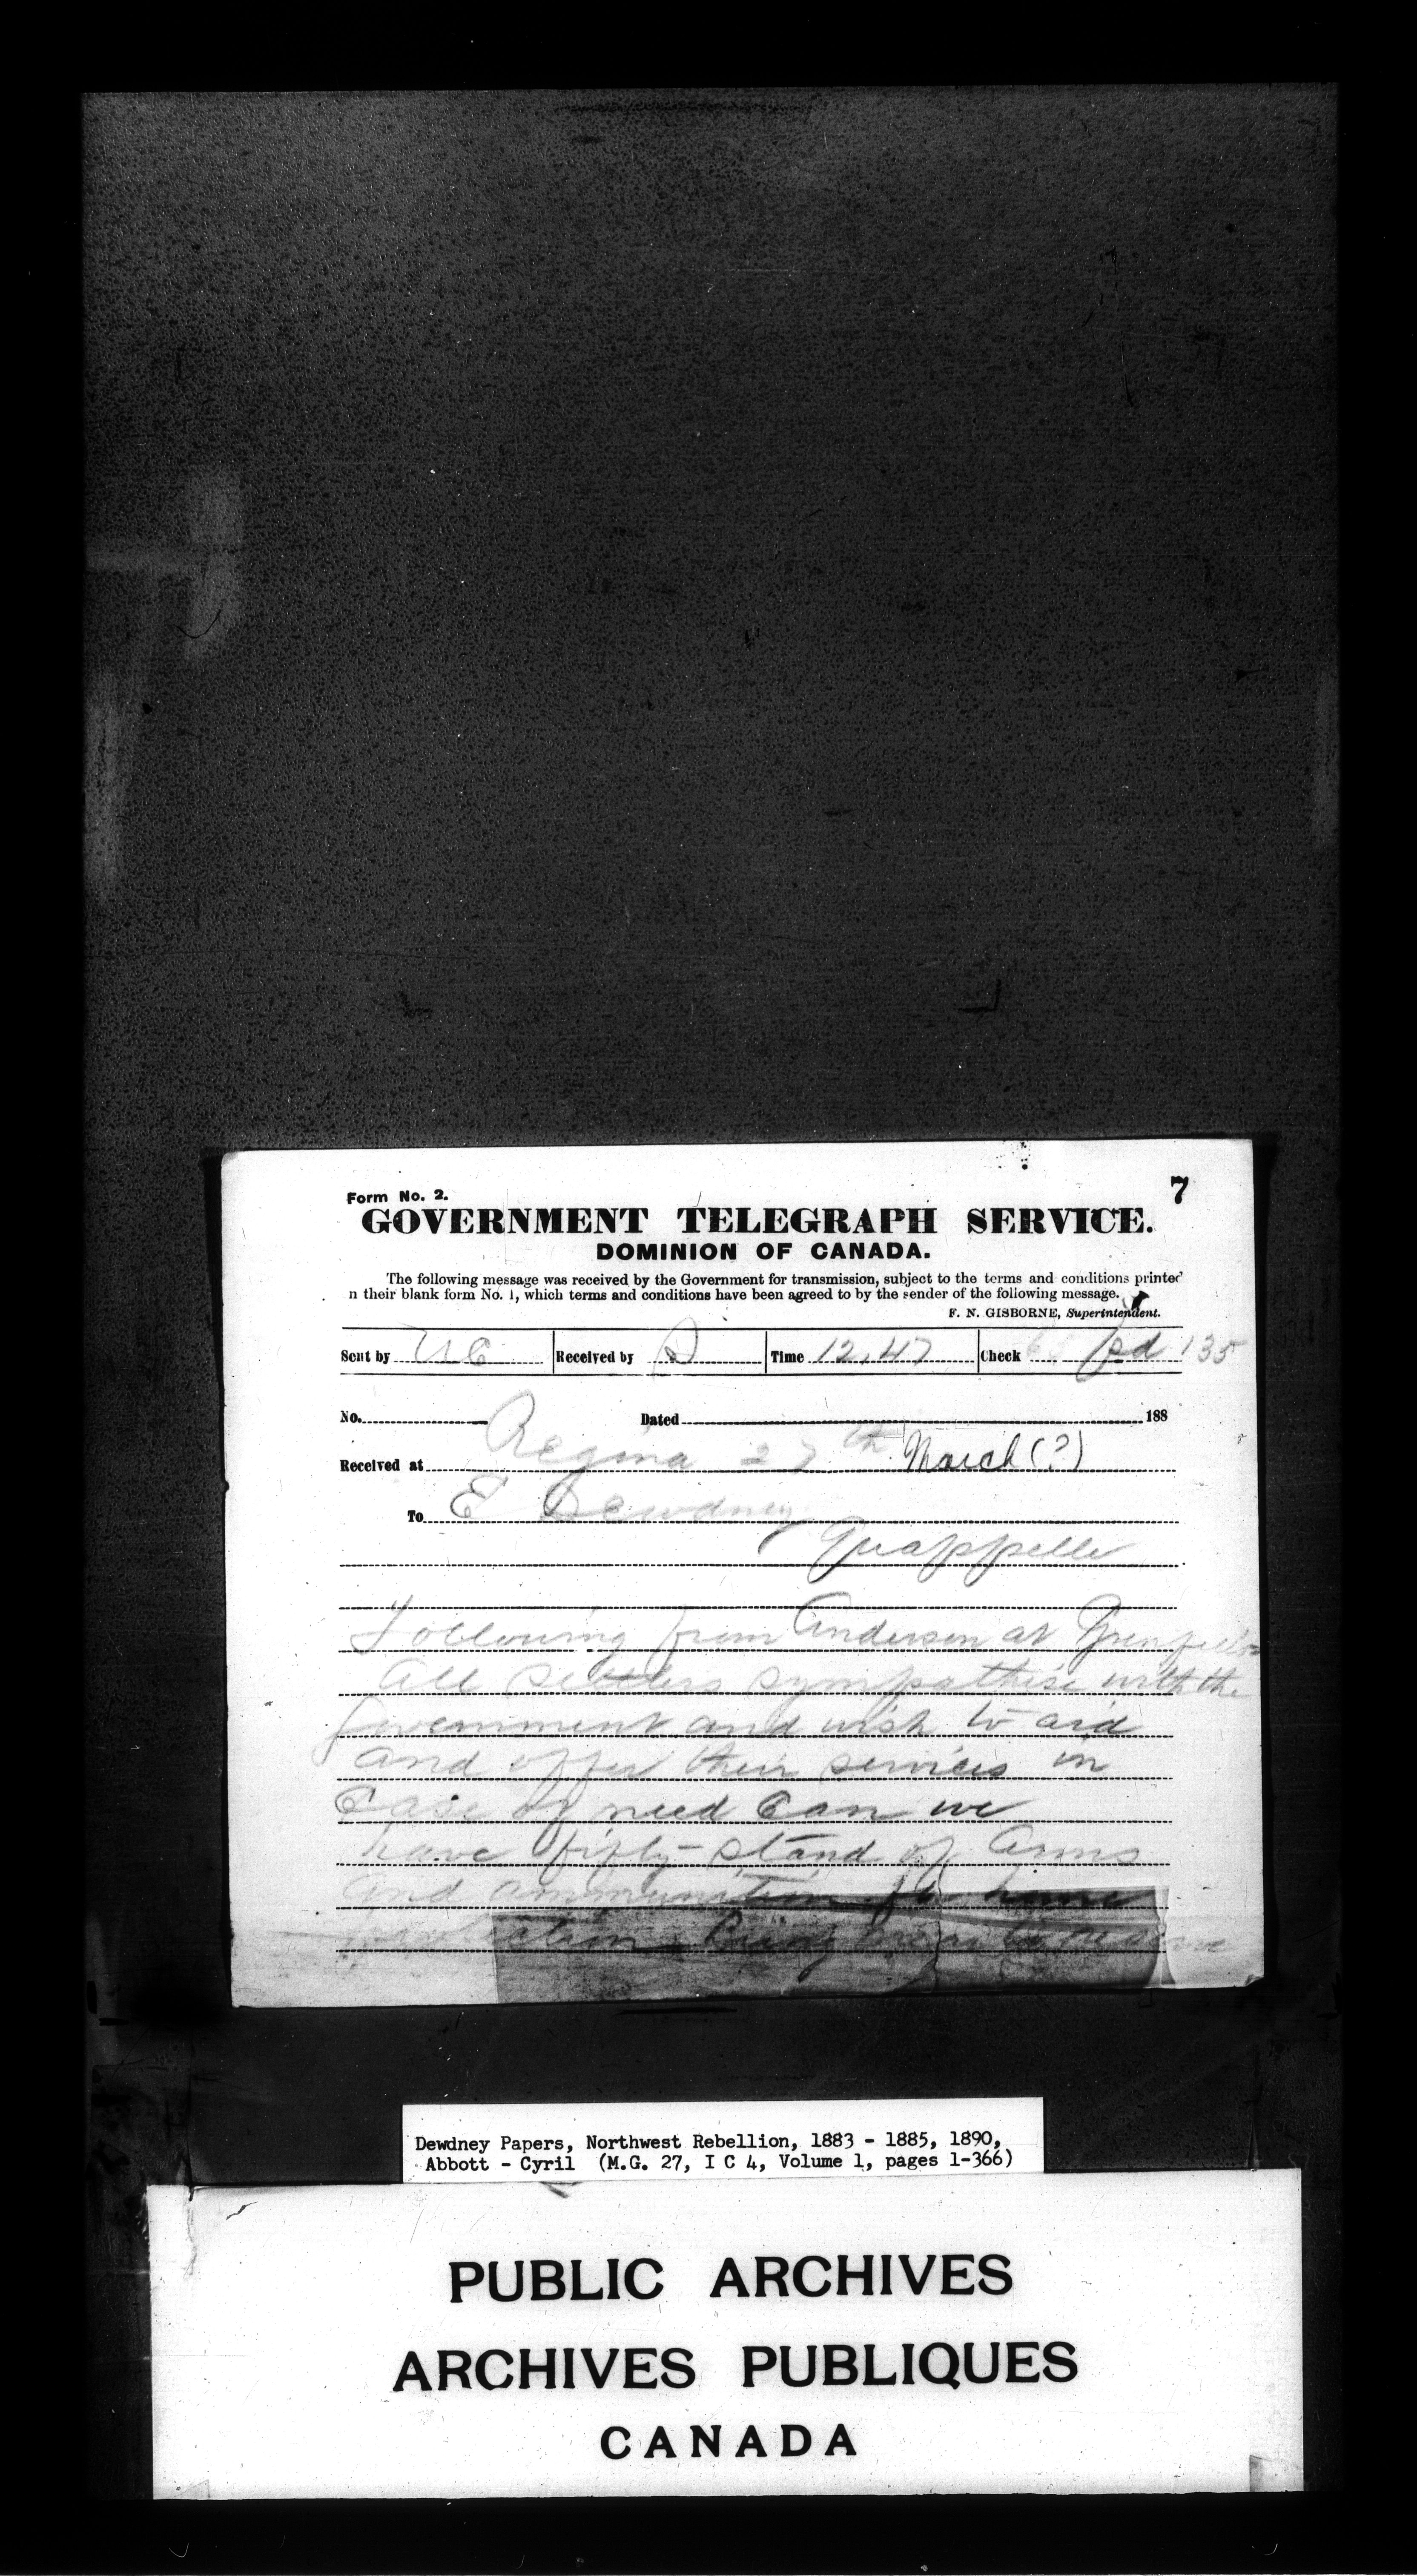 Form No. 2.
7
GOVERNMENT TELEGRAPH SERVICE.
DOMINION OF CANADA.
The following message was received by the Government for transmission, subject to the terms and conditions printed
n their blank form No. 1, which terms and conditions have been agreed to by the sender of the following message.
F. N. GISBORNE, Superintendent.
Sent by Received by Time 12.47 Check pd 135
No. Dated 188
Received at Regina 27th March (?)
To E Dewdney
Quappelle
Following from Anderson at Grenfell
all settlers sympathise with the
Government and wish to aid
and offer their services in
Case of need Can we
have fifty stand of arms
and ammunition for home
Being near
Dewdney Papers, Northwest Rebellion, 1883 - 1885, 1890,
Abbott - Cyril (M.G. 27, I C 4, Volume 1, pages 1-366)
PUBLIC ARCHIVES
ARCHIVES PUBLIQUES
CANADA